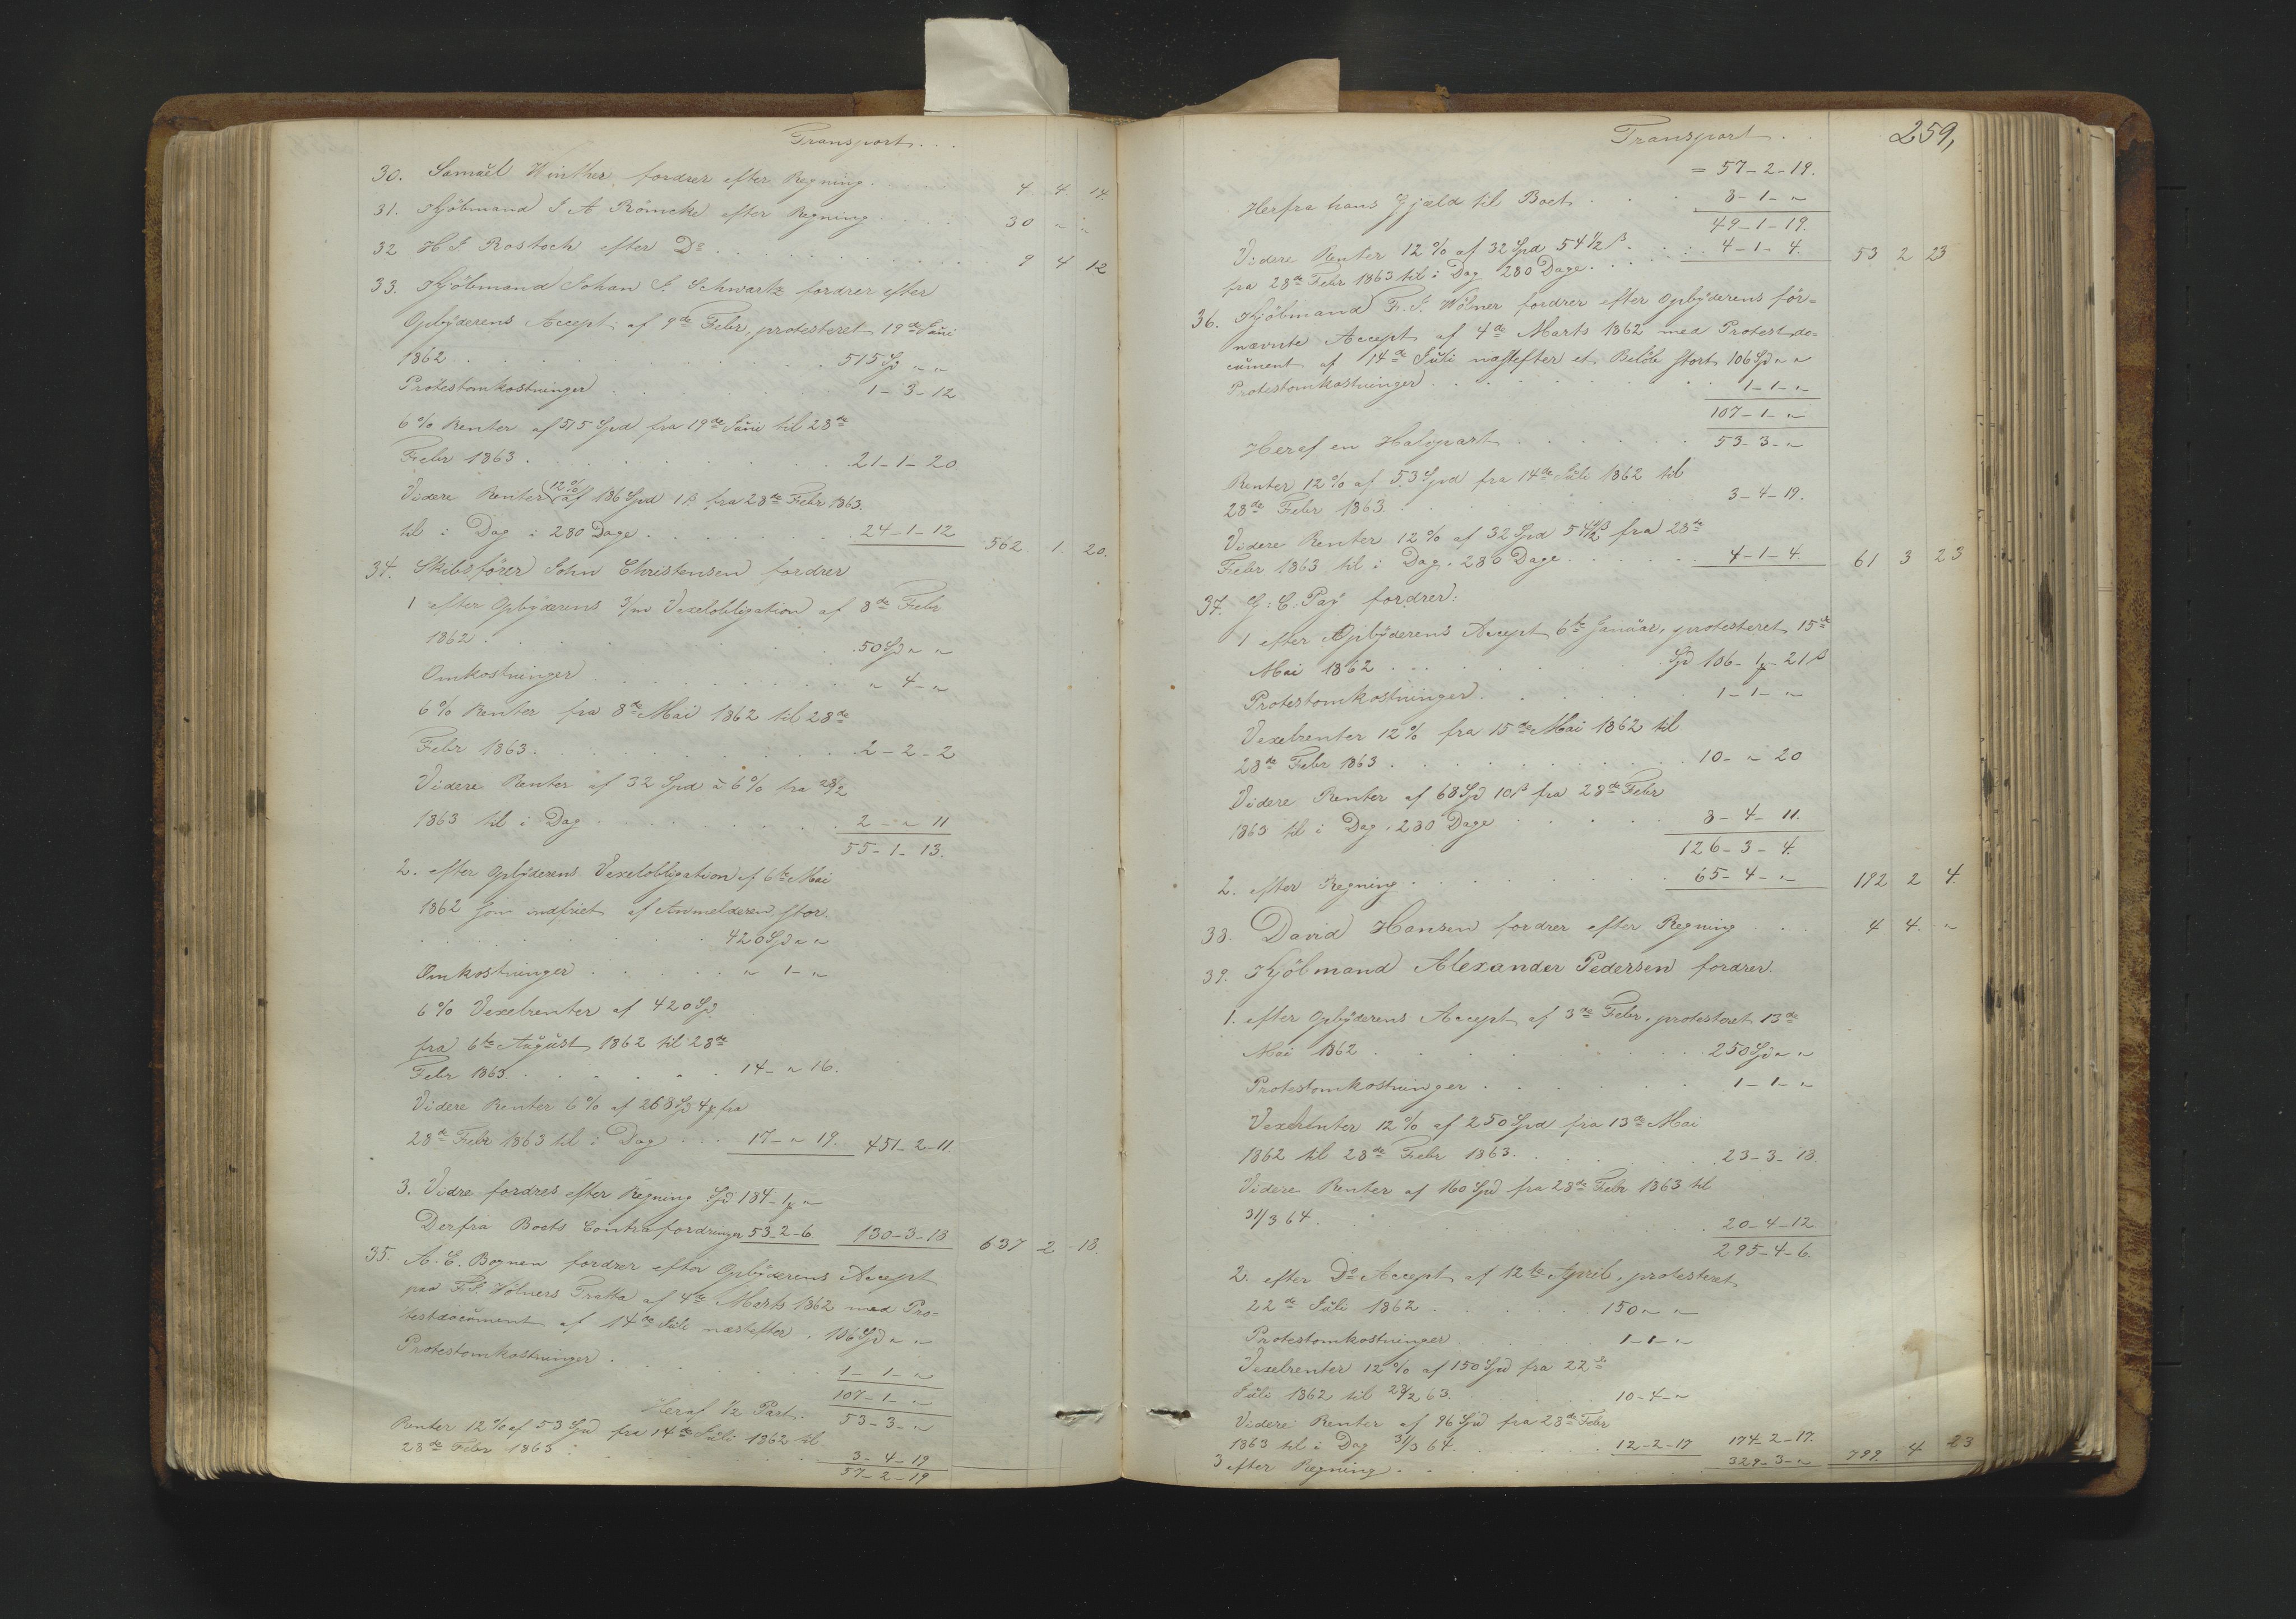 Transport . . .
30. Samuel Winther fordrer efter Regning . 4 4 14.
31. Kjöbmand J A Römcke efter Regning . . . 30 " "
32 H. J. Rostoch efter Do . . . . 9 4 12
33. Kjöbmand Johan J. Schwartz fordrer efter
Opbÿderens Accept af 9de Febr, protesteret 19de Juni
1862 . . . . 515 Spd " "
Protestomkostninger . . . 1-3-12
6 % Renter af 515 Spd fra 19de Juni til 28de
Febr 1863 . . . . 21-1-20.
Videre Renter 12 % af 186 Spd 1 β fra 28de Febr 1863.
til i Dag i 280 Dage . . . 24-1-12 562 1 20.
34. Skibsförer John Christensen fordrer
1 efter Opbÿderens 3/m Vexelobligation af 8de Febr
1862 . . . . 50 Spd " "
Omkostninger . . . . " 4 - "
6 % Renter fra 8de Mai 1862 til 28de
Febr 1863 . . . . 2-2-2
Videre Renter af 32 Spd à 6 % fra 28/2
1863 til i Dag . . . . 2 - " 11
55-1-13.
2. efter Opbÿderens Vexelobligation af 6te Mai
1862 som indfriet af Anmelderen, stor.
. . . . 420 Spd " "
Omkostninger . . . . " 1 - "
6 % Vexelrenter af 420 Spd
fra 6te August 1862 til 28de
Febr 1863 . . . . 14 - " 16.
Videre Renter 6 % af 268 Spd 4 fra
28de Febr 1863 til i Dag . . . 17 - " 19. 451-2-11.
3. Vidre fordres efter Regning Spd 184-1 "
Derfra Boets Contrafordringer 53-2-6 130-3-18 637 2 18.
35. A. E. Bognen fordrer efter Opbÿderens Accept
paa F. J. Wölners Tratta af 4de Marts 1862 med Pro=
testdocument af 14de Juli næstefter . 106 Spd " "
Protestomkostninger . . . . 1-1- "
107-1- "
Heraf 1/2 Part. 53-3- "
Renter 12 % af 53 Spd fra 14de Juli 1862 til
28de Febr 1863 : . . . 3-4-19
57-2-19
259,
Transport . .
= 57-2-19.
Herfra hans Gjæld til Boet . . . 8-1- "
49-1-19.
Videre Renter 12 % af 32 Spd 54 1/2 β . . . 4-1-4. 53 2 23
fra 28de Febr 1863 til i Dag 280 Dage . . .
36. Kjöbmand F. J. Wölner fordrer efter Opbÿderens för=
nævnte Accept af 4de Marts 1862 med Protestdo=
cument af 14de Juli næstefter et Belöb stort 106 Spd " "
Protestomkostninger . . . . 1-1- "
107-1- "
Heraf en Halvpart . . . . 53-3- "
Renter 12 % af 53 Spd fra 14de Juli 1862 til
28de Febr 1863. . . . 3-4-19.
Videre Renter 12 % af 32 Spd 54 1/2 β fra 28de
Febr 1863 til i Dag. 280 Dage . . . 4-1-4. 61 3 23
37. G: C: Paÿ fordrer:
1 efter Opbÿderens Accept 6te Januar, protesteret 15de
Mai 1862 . . . . Spd 106-1-21 β
Protestomkostninger . . . 1-1- "
Vexelrenter 12 % fra 15de Mai 1862 til
28de Febr 1863 . . . . 10- " 20
Videre Renter af 68 Spd 10 β fra 28de Febr
1863 til i Dag. 280 Dage . . . 8-4-11.
126-3-4.
2. efter Regning . . . . 65-4- " 192 2 4.
38. David Hansen fordrer efter Regning . . . 4 4. "
39. Kjöbmand Alexander Pedersen fordrer.
1. efter Opbÿderens Accept af 3de Febr. protesteret 13de
Mai 1862 . . . . 250 Spd " "
Protestomkostninger . . . 1-1- "
Vexelrenter 12 % af 250 Spd fra 13de Mai
1862 til 28de Febr 1863. . . . 23-3-18.
Videre Renter af 160 Spd fra 28de Febr 1863 til
31/3 64. . . . 20-4-12
295-4-6.
2. efter Do Accept af 12te April, protesteret
22de Juli 1862 . . . 150 " "
Protestomkostninger . . . 1-1- "
Vexelrenter 12 % af 150 Spd fra 22de
Juli 1862 til 28/2 63. . . . 10-4- "
Videre Renter af 96 Spd fra 28de Febr
1863 til i Dag 31/3 64. . . . 12-2-17 174-2-17.
3 efter Regning . . . . 329-3- " 799. 4 23